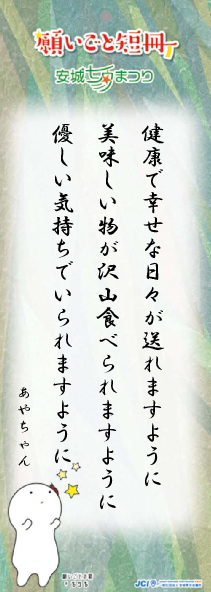 願いごと短冊
安城七夕まつり
健康で幸せな日々が送れますように
美味しい物が沢山食べられますように
優しい気持ちでいられますように
あやちゃん
JCI